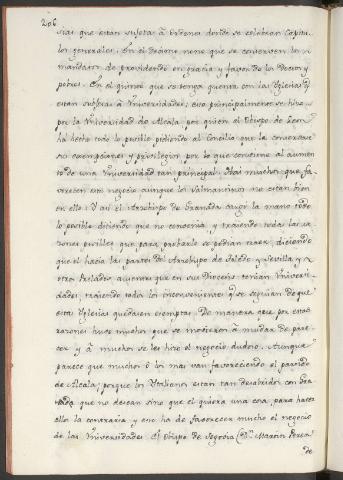 206
sias que estan sujetas à Ordenes donde se celebran Capitu
los generales. En el decimo nono que se conserven los
mandatos de proveidendo en gracia y favor de los Doctos y
pobres. En el quinto que se tenga quenta con las Yglesias q
estan subjetas à Universidades, esto principalmente se hizo
por la Universidad de Alcala por quien el Obispo de Leon
ha hecho todo lo posible pidiendo al Concilio que la conservase
sus exempciones y privilegios por lo que conviene al aumen
to de una Universidad tan principal. Hai muchos que fa
vorecen este negocio aunque los Salmantinos no estan bien
en ello. Y asi el Arzobispo de Granada cargó la mano todo
lo posible diciendo que no convenia, y trayendo todas las ra
zones posibles que para probarlo se podian traer, diciendo
que el hacia las partes del Arzobispo de Toledo y Sevilla y
otros Prelados ausentes que en sus Diocesis tenian Universi
dades, trayendo todos los inconvenientes q se seguian de que
estas Yglesias quedasen exemptas. De manera que por estas
razones huvo muchos que se movieron à mudar de pare
cer y à muchos se les hizo el negocio dudoso. Aunque
parece que muchos ó los mas van favoreciendo el partido
de Alcala; porque los Ytalianos estan tan desabridos con Gra
nada que no desean sino que el quiera una cosa, para hacer
ellos la contraria y esto ha de favorecer mucho el negocio
de las Universidades. El Obispo de Segovia (Dn. Martin Perez
de